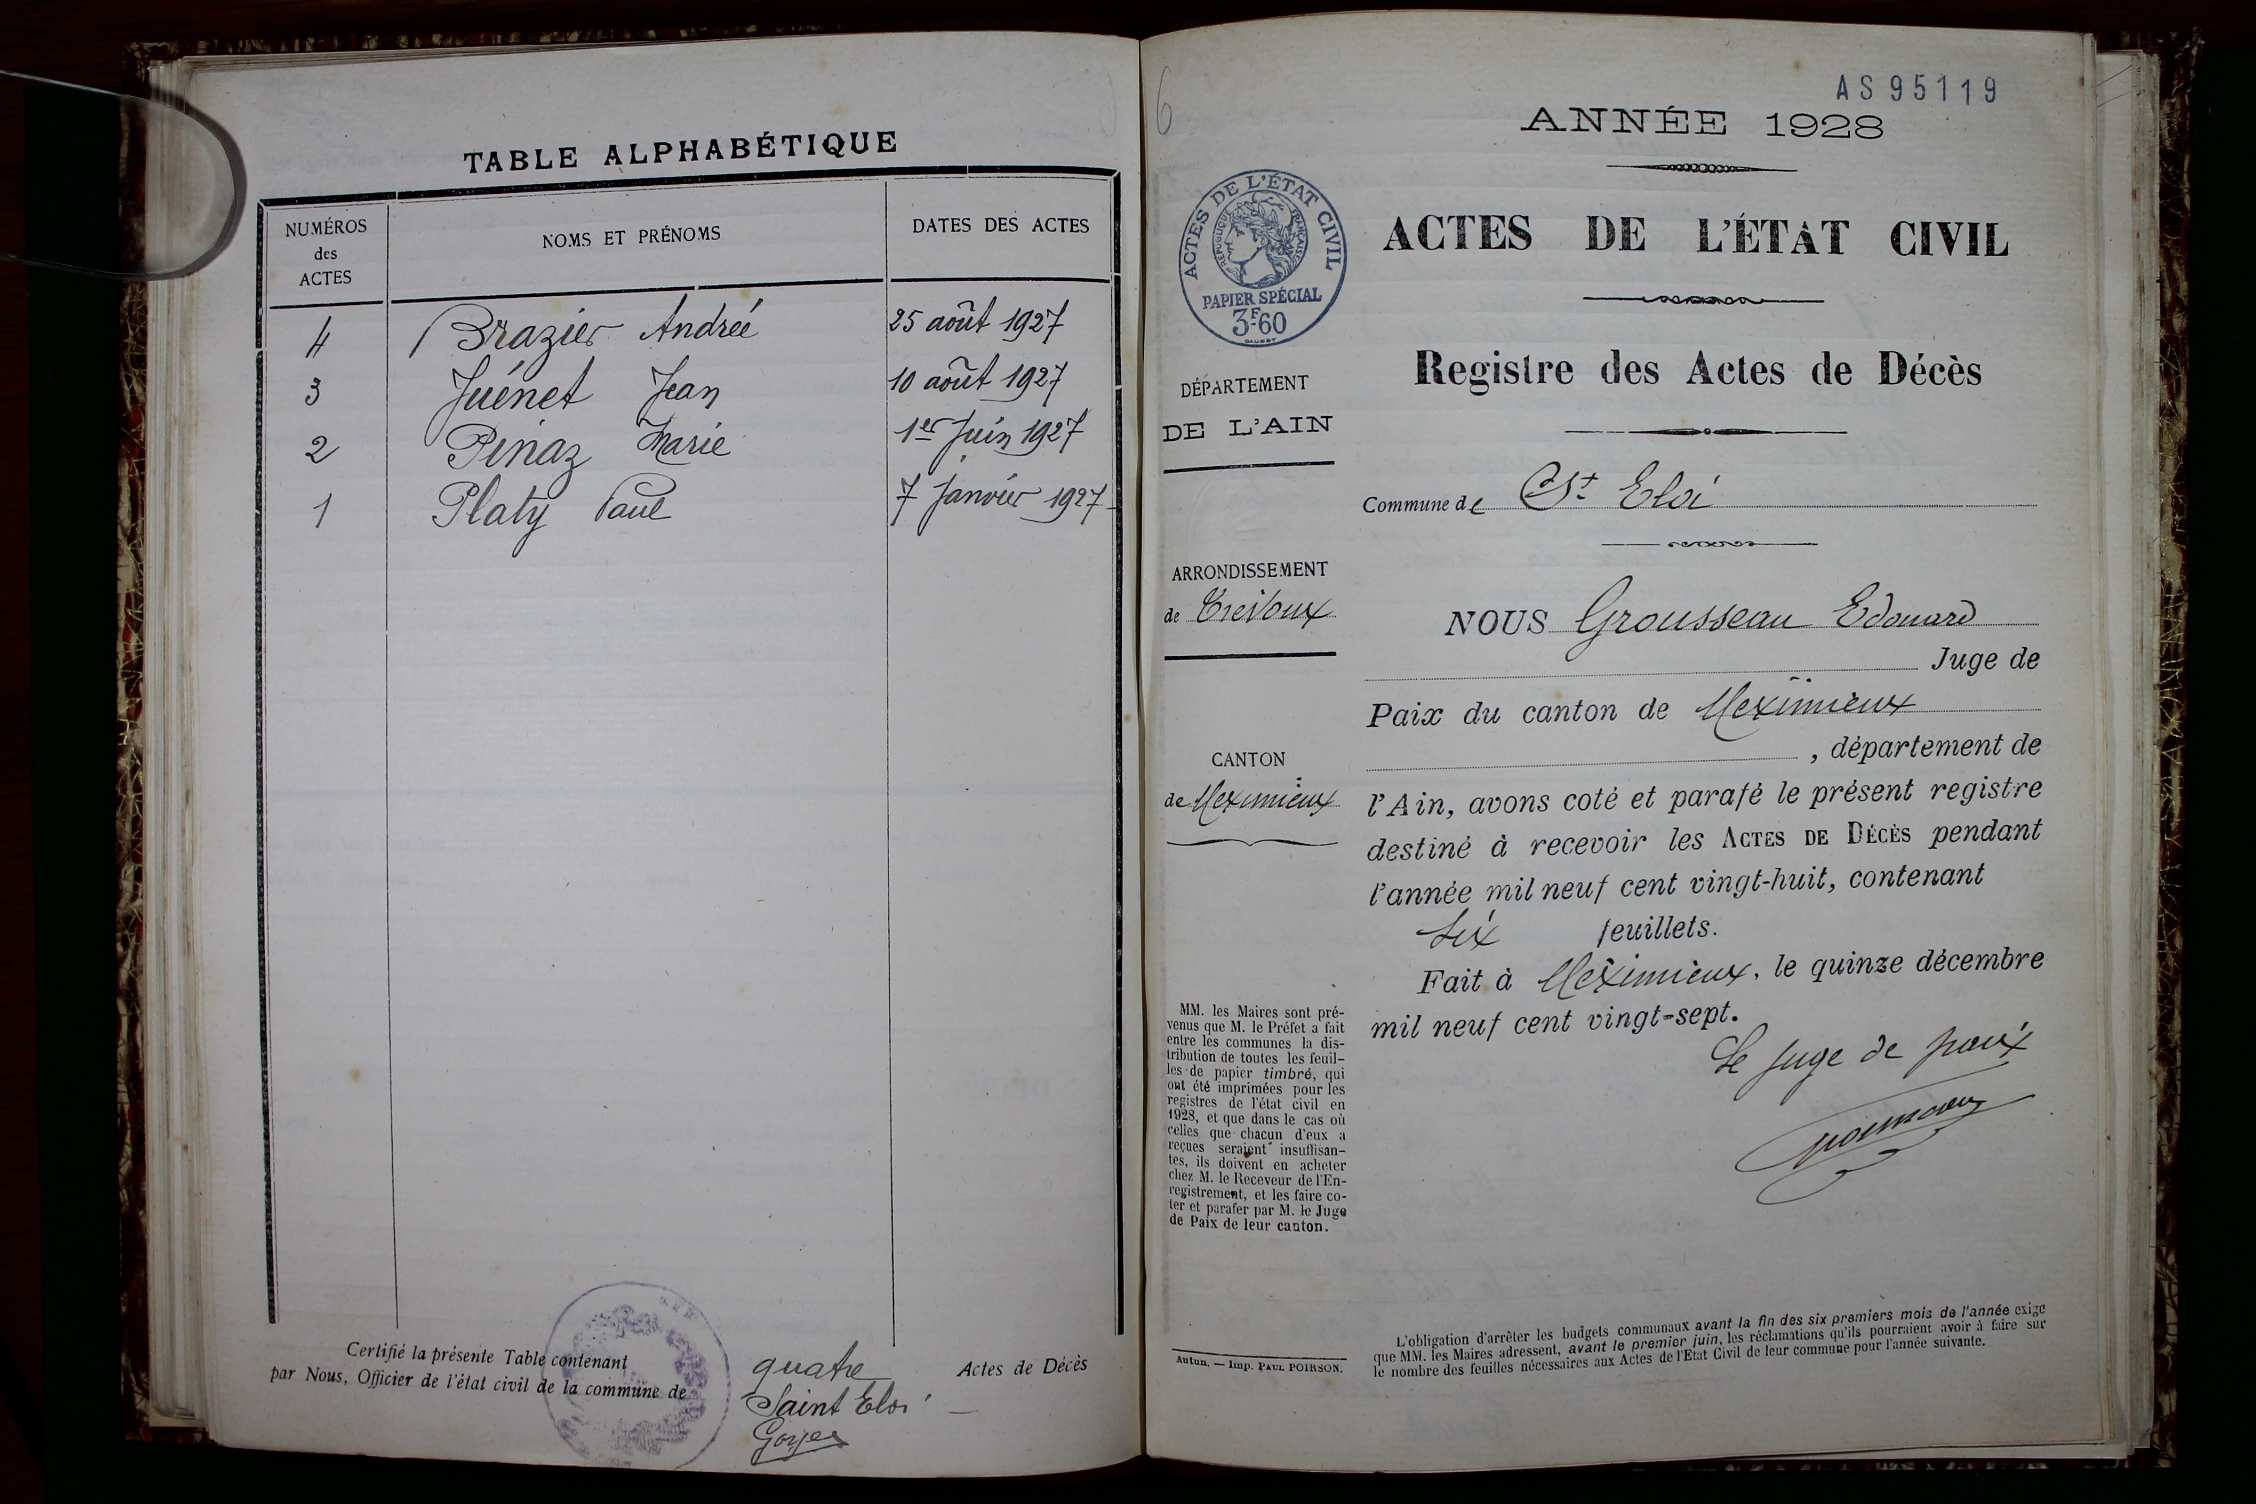 TABLE ALPHABÉTIQUE
NUMÉROS
des
ACTES
NOMS ET PRÉNOMS
DATES DES ACTES
4 Brazier Andrée 25 août 1927
3 Juénet Jean 10 août 1927
2 Pinaz Marie 1er Juin 1927
1 Platy Paul 7 Janvier 1927
Certifié la présente Table contenant quatre Actes de Décès
par Nous, Officier de l'état civil de la commune de Saint Eloi
6
AS95119
ANNÉE 1928
ACTES DE L'ÉTAT CIVIL
RÉPUBLIQUE FRANÇAISE
PAPIER SPÉCIAL
3F60
ACTES DE L'ÉTAT CIVIL
Registre des Actes de Décès
DÉPARTEMENT
DE L'AIN
Commune de St Eloi
ARRONDISSEMENT
de Trévoux
CANTON
de Meximieux
NOUS Grousseau Edouard
Juge de
Paix du canton de Meximieux
, département de
l'Ain, avons coté et parafé le présent registre
destiné à recevoir les ACTES DE DÉCÈS pendant
l'année mil neuf cent vingt-huit, contenant
six feuillets.
Fait à Meximieux, le quinze décembre
mil neuf cent vingt-sept.
Le Juge de paix
MM. les Maires sont pré-
venus que M. le Préfet a fait
entre les communes la dis-
tribution de toutes les feuil-
les de papier timbré, qui
ont été imprimées pour les
registres de l'état civil en
1928, et que dans le cas où
celles que chacun d'eux a
reçues seraient insuffisan-
tes, ils doivent en acheter
chez M. le Receveur de l'En-
registrement, et les faire co-
ter et parafer par M. le Juge
de Paix de leur canton.
Autun. — Imp. PAUL POIRSON.
L'obligation d'arrêter les budgets communaux avant la fin des six premiers mois de l'année exige
que MM. les Maires adressent, avant le premier juin, les réclamations qu'ils pourraient avoir à faire sur
le nombre des feuilles nécessaires aux Actes de l'Etat Civil de leur commune pour l'année suivante.